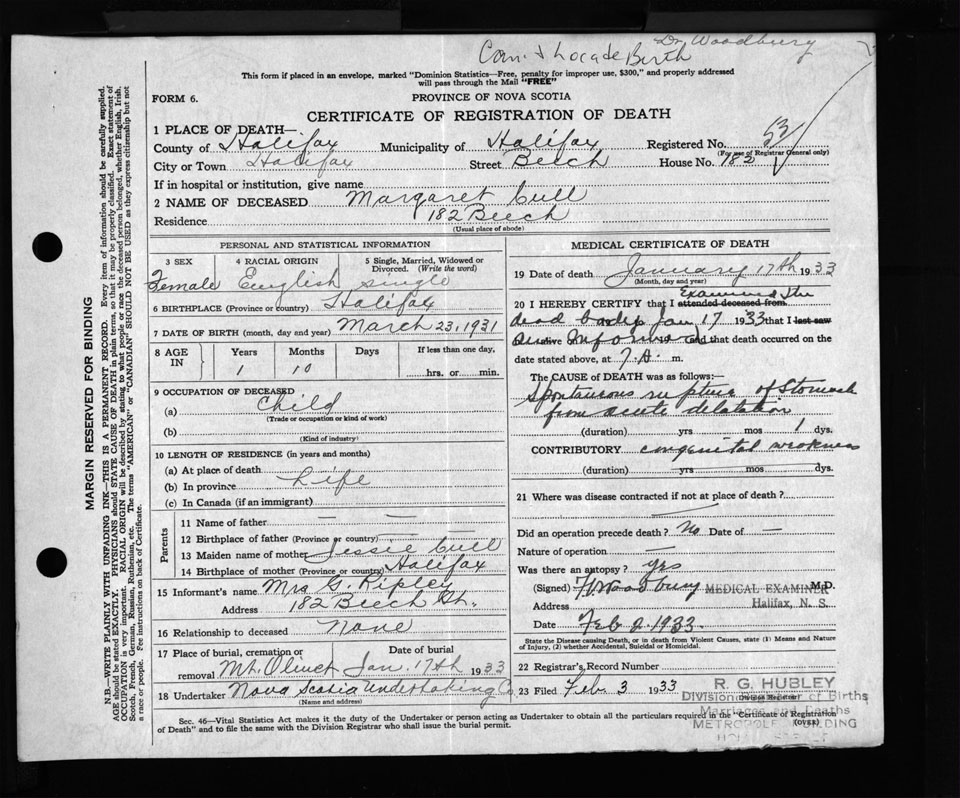 Dr Woodbury
Birth
This form if placed in an envelope, marked "Dominion Statistics—Free, penalty for improper use, $300," and properly addressed
will pass through the Mail "FREE"
FORM 6.
PROVINCE OF NOVA SCOTIA
CERTIFICATE OF REGISTRATION OF DEATH
1 PLACE OF DEATH—
County of Halifax Municipality of Halifax Registered No. 53
(For use of Registrar General only)
City or Town Halifax Street Beech House No. 182
If in hospital or institution, give name
2 NAME OF DECEASED Margaret Cull
Residence 182 Beech
(Usual place of abode)
PERSONAL AND STATISTICAL INFORMATION
3 SEX 4 RACIAL ORIGIN 5 Single, Married, Widowed or Divorced. (Write the word)
Female English Single
6 BIRTHPLACE (Province or country) Halifax
7 DATE OF BIRTH (month, day and year) March 23, 1931
8 AGE IN Years Months Days If less than one day,
1 10 hrs. or min.
9 OCCUPATION OF DECEASED
(a) Child
(Trade or occupation or kind of work)
(b)
(Kind of industry)
10 LENGTH OF RESIDENCE (in years and months)
(a) At place of death
(b) In province Life
(c) In Canada (if an immigrant)
Parents
11 Name of father — —
12 Birthplace of father (Province or country) — —
13 Maiden name of mother Jessie Cull
14 Birthplace of mother (Province or country) Halifax
15 Informant's name Mrs G. Ripley
Address 182 Beech St.
16 Relationship to deceased None
17 Place of burial, cremation or removal Date of burial
Mt. Olivet Jan. 17th 1933
18 Undertaker Nova Scotia Undertaking Co.
(Name and address)
MEDICAL CERTIFICATE OF DEATH
19 Date of death January 17th 1933
(Month, day and year)
20 I HEREBY CERTIFY that I attended deceased from Examined the
dead body Jan 17 1933 that I last saw
and that death occurred on the
date stated above, at 7 A. m.
The CAUSE OF DEATH was as follows:—
Spontaneous rupture of Stomach
from acute dilatation
(duration) yrs mos 1 dys.
CONTRIBUTORY congenital weakness
(duration) yrs mos dys.
21 Where was disease contracted if not at place of death?
Did an operation precede death? No Date of —
Nature of operation —
Was there an autopsy? Yes
(Signed) Woodbury MEDICAL EXAMINER M.D.
Address Halifax, N. S.
Date Feb 2 1933.
State the Disease causing Death, or in death from Violent Causes, state (1) Means and Nature
of Injury, (2) whether Accidental, Suicidal or Homicidal.
22 Registrar's Record Number
23 Filed Feb 3 1933 R. G. HUBLEY
Division Registrar of Births
Marriages and Deaths
METROPOLE BUILDING
Sec. 46—Vital Statistics Act makes it the duty of the Undertaker or person acting as Undertaker to obtain all the particulars required in the "Certificate of Registration
of Death" and to file the same with the Division Registrar who shall issue the burial permit.
(OVER)
MARGIN RESERVED FOR BINDING
N.B.—WRITE PLAINLY WITH UNFADING INK—THIS IS A PERMANENT RECORD. Every item of information should be carefully supplied.
AGE should be stated EXACTLY. PHYSICIANS should STATE CAUSE OF DEATH in plain terms, so that it may be properly classified. Exact statement of
OCCUPATION is very important. RACIAL ORIGIN will be described by stating to what people or race the deceased person belonged, whether English, Irish,
Scotch, French, German, Russian, Ruthenian, etc. The terms "AMERICAN" or "CANADIAN" SHOULD NOT BE USED as they express citizenship but not
a race or people. See instructions on back of Certificate.